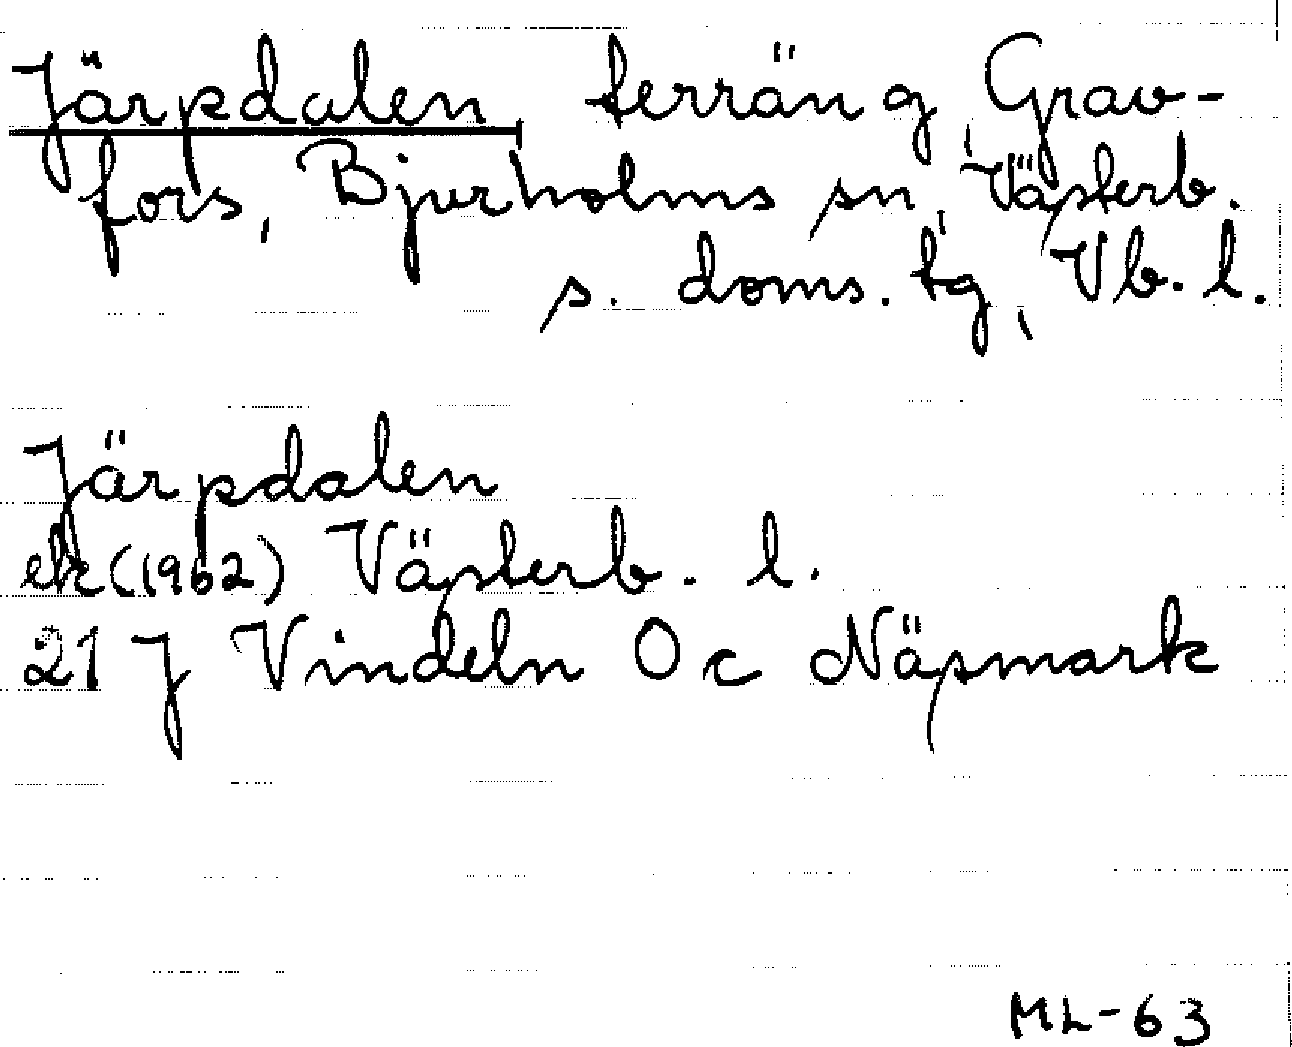 Järpdalen terräng, Grav-
fors, Bjurholms sn, Västerb.
s. doms. tg, Vb. l.
Järpdalen
ek (1962) Västerb. l.
21 J Vindeln 0 c Näsmark
ML-63